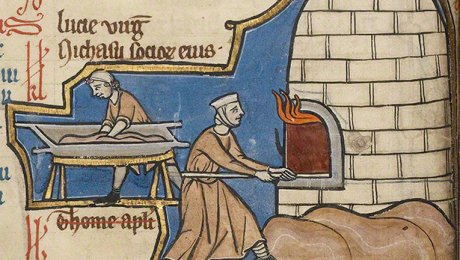 lucie virg
Nichasii socior eius.
Thome apli